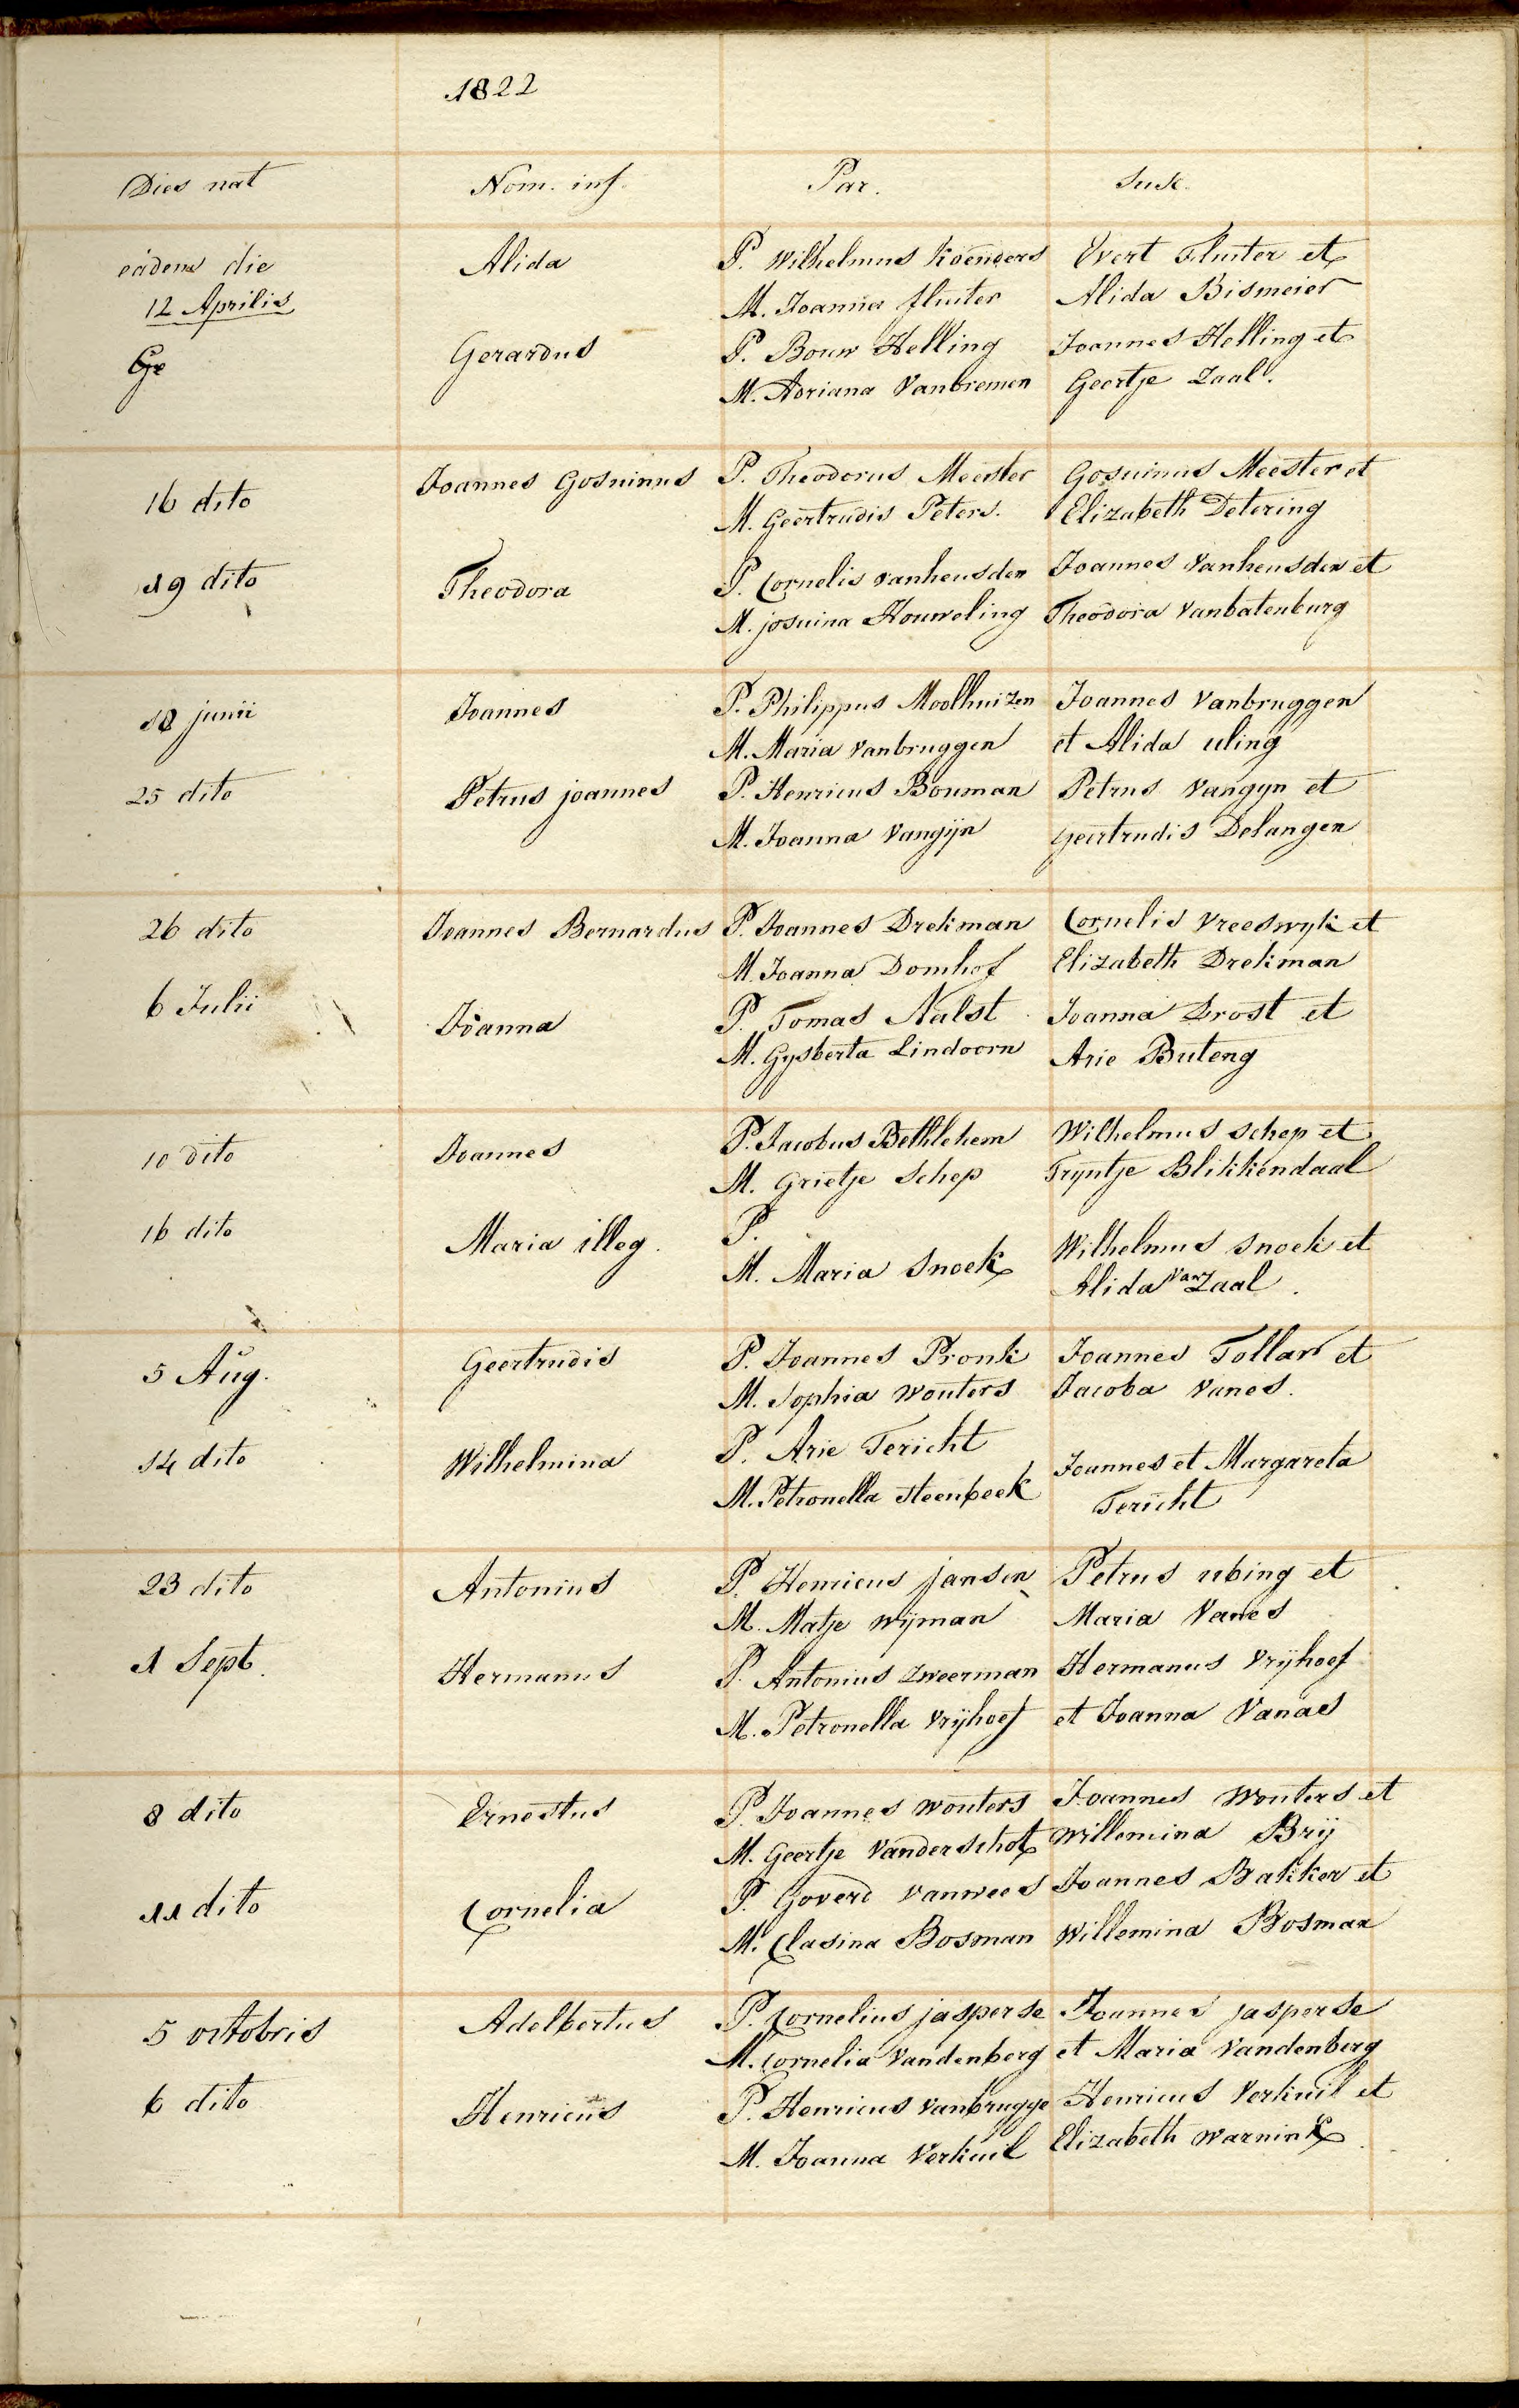 1822
Dies nat Nom. inf. Par. Susc.
eadem die Alida P. Wilhelmus Koenders Evert Fluiter et
12 Aprilis M. Joanna fluiter Alida Bismeier
Ge Gerardus P. Bouw Helling Joannes Helling et
M. Adriana Vanbremen Geertje Zaal.
16 dito Joannes Gosuinus P. Theodorus Meester Gosuinus Meester et
M. Geertrudis Peters. Elizabeth Detering
19 dito Theodora P. Cornelis vanheusden Joannes Vanheusden et
M. josuina Houweling Theodora Vanbatenburg
18 junii Joannes P. Philippus Moolhuizen Joannes Vanbruggen
M. Maria vanbruggen et Alida uling
25 dito Petrus joannes P. Henricus Bouman Petrus Vangyn et
M. Joanna Vangijn Geertrudis Delangen
26 dito Joannes Bernardus P. Joannes Drekman Cornelis Vreeswyk et
M. Joanna Domhof Elizabeth Drekman
6 Julii Joanna P. Tomas Nalst Joanna Drost et
M. Gysberta Lindoorn Arie Buteng
10 dito Joannes P. Jacobus Bethlehem Wilhelmus schep et
M. Grietje Schep Tryntje Blikkendaal
16 dito Maria illeg. P. Wilhelmus Snoek et
M. Maria Snoek Alida Van Zaal.
5 Aug. Geertrudis P. Joannes Pronk Joannes Tollar et
M. Sophia Wouters Jacoba Vanes.
14 dito Wilhelmina P. Arie Tericht Joannes et Margareta
M. Petronella Steenbeek Tericht
23 dito Antonius P. Henricus jansen Petrus ubing et
M. Matje Wijman Maria Vanes
1 Sept. Hermanus P. Antonius Zweerman Hermanus Vrijhoef
M. Petronella Vrijhoef et Joanna Vanaes
8 dito Ernestus P. Joannes Wouters Joannes Wouters et
M. Geertje Vanderschot Willemina Brij
11 dito Cornelia P. Goverd Vanwees Joannes Bakker et
M. Clasina Bosman Willemina Bosman
5 octobris Adelbertus P. Cornelius jasperse Joannes jasperse
M. Cornelia Vandenberg et Maria Vandenberg
6 dito Henricus P. Henricus Vanbrugge Henricus Verkuil et
M. Joanna Verkuil Elizabeth Warnink